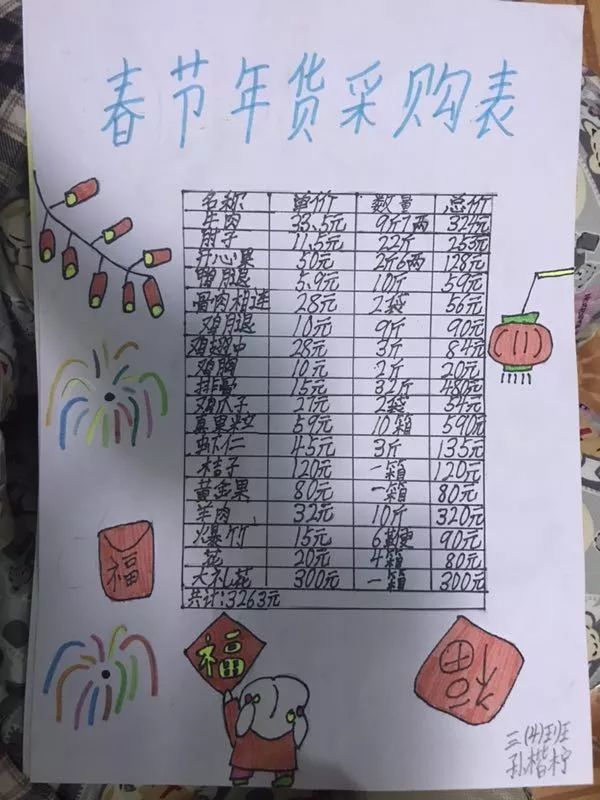 春节年货采购表
名称 单价 数量 总价
牛肉 33.5元 9斤7两 324元
肘子 11.5元 22斤 253元
开心果 50元 2斤6两 128元
鸭腿 5.9元 10斤 59元
骨肉相连 28元 2袋 56元
鸡腿 10元 9斤 90元
鸡翅中 28元 3斤 84元
鸡胸 10元 2斤 20元
排骨 15元 32斤 480元
鸡爪子 27元 2袋 54元
真果粒 59元 10箱 590元
虾仁 45元 3斤 135元
桔子 120元 一箱 120元
黄金果 80元 一箱 80元
羊肉 32元 10斤 320元
爆竹 15元 6 90元
花 20元 4箱 80元
大礼花 300元 一箱 300元
共计:3263元
福
福
福
三(4)班
孙楷柠